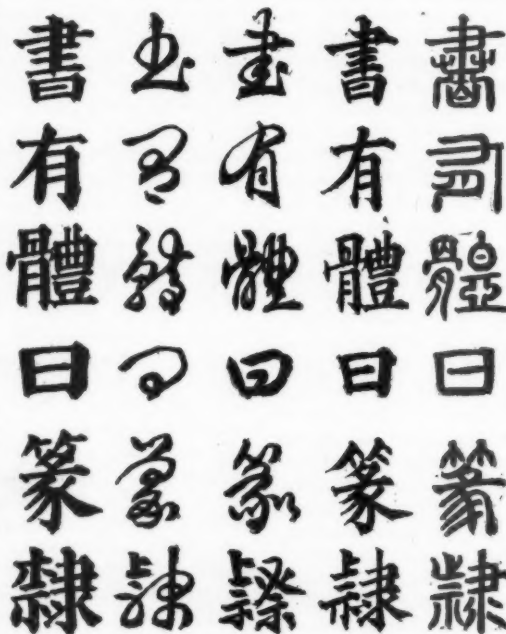 書有體曰篆隸
書有體曰篆隸
書有體曰篆隸
書有體曰篆隸
書有體曰篆隸